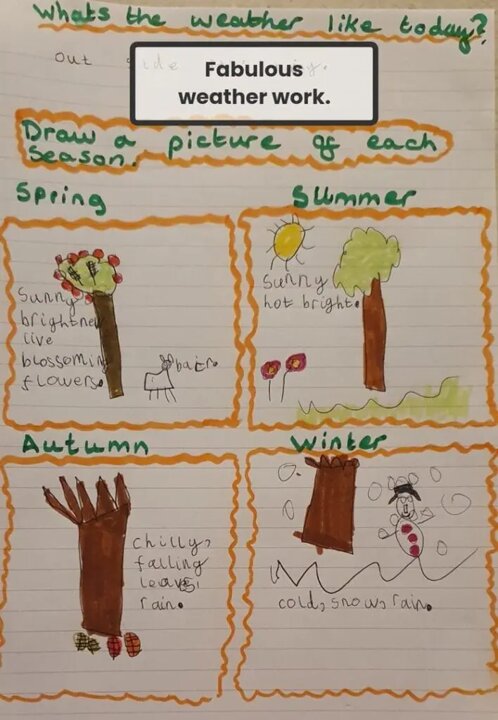 Whats the weather like today?
Out side
Fabulous
weather work.
Draw a picture of each
Season.
Spring
Summer
Sunny
brightnew
live
blossoming
flowers.
Sunny
hot bright.
Autumn
Winter
chilly,
falling
leaves,
rain.
cold, snow, rain.